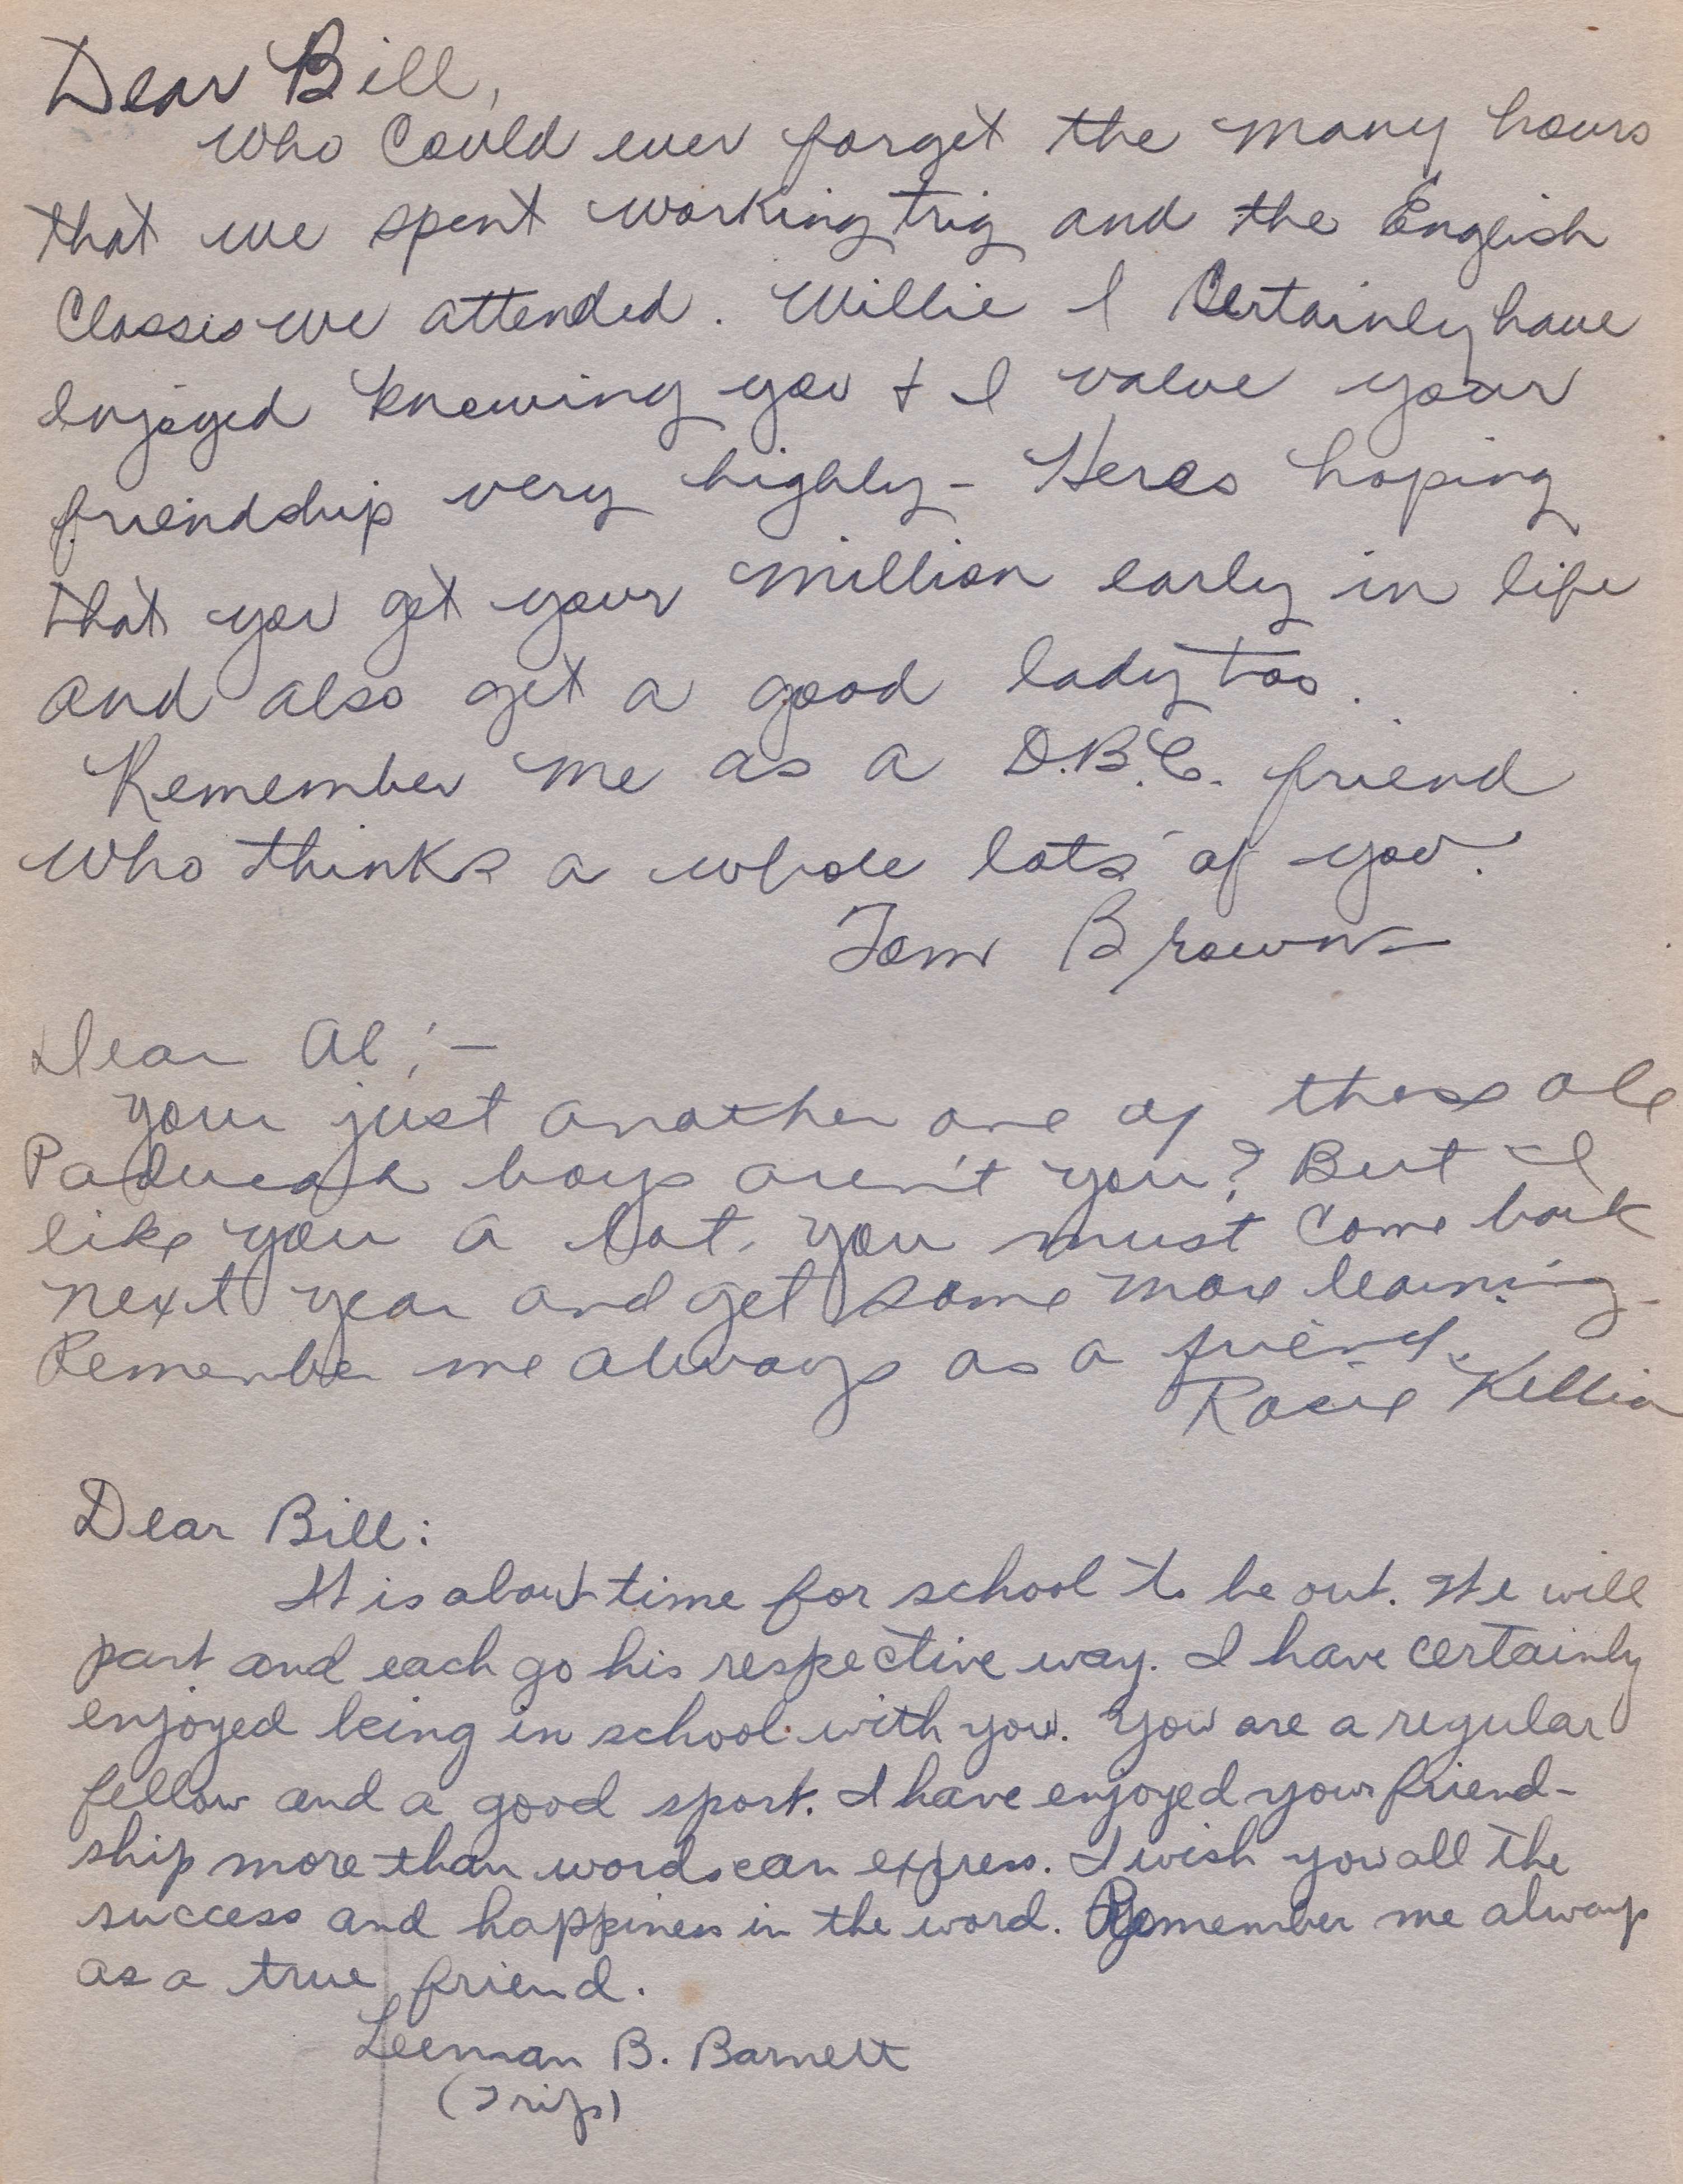 Dear Bill,
Who could ever forget the many hours
that we spent working trig and the English
Classes we attended. Willie I Certainly have
enjoyed knowing you + I value your
friendship very highly - Heres hoping
that you get your million early in life
and also get a good lady too.
Remember me as a D.B.C. friend
who thinks a whole lots of you.
Tom Brown
Dear Al; -
your just another one of these ole
Paducah boys aren't you? But I
like you a lot. you must come back
next year and get some more learning.
Remember me always as a friend.
Rosie
Dear Bill:
It is about time for school to be out. We will
part and each go his respective way. I have certainly
enjoyed being in school with you. You are a regular
fellow and a good sport. I have enjoyed your friend-
ship more than words can express. I wish you all the
success and happiness in the word. Remember me always
as a true friend.
Leeman B. Barnett
(Trip)